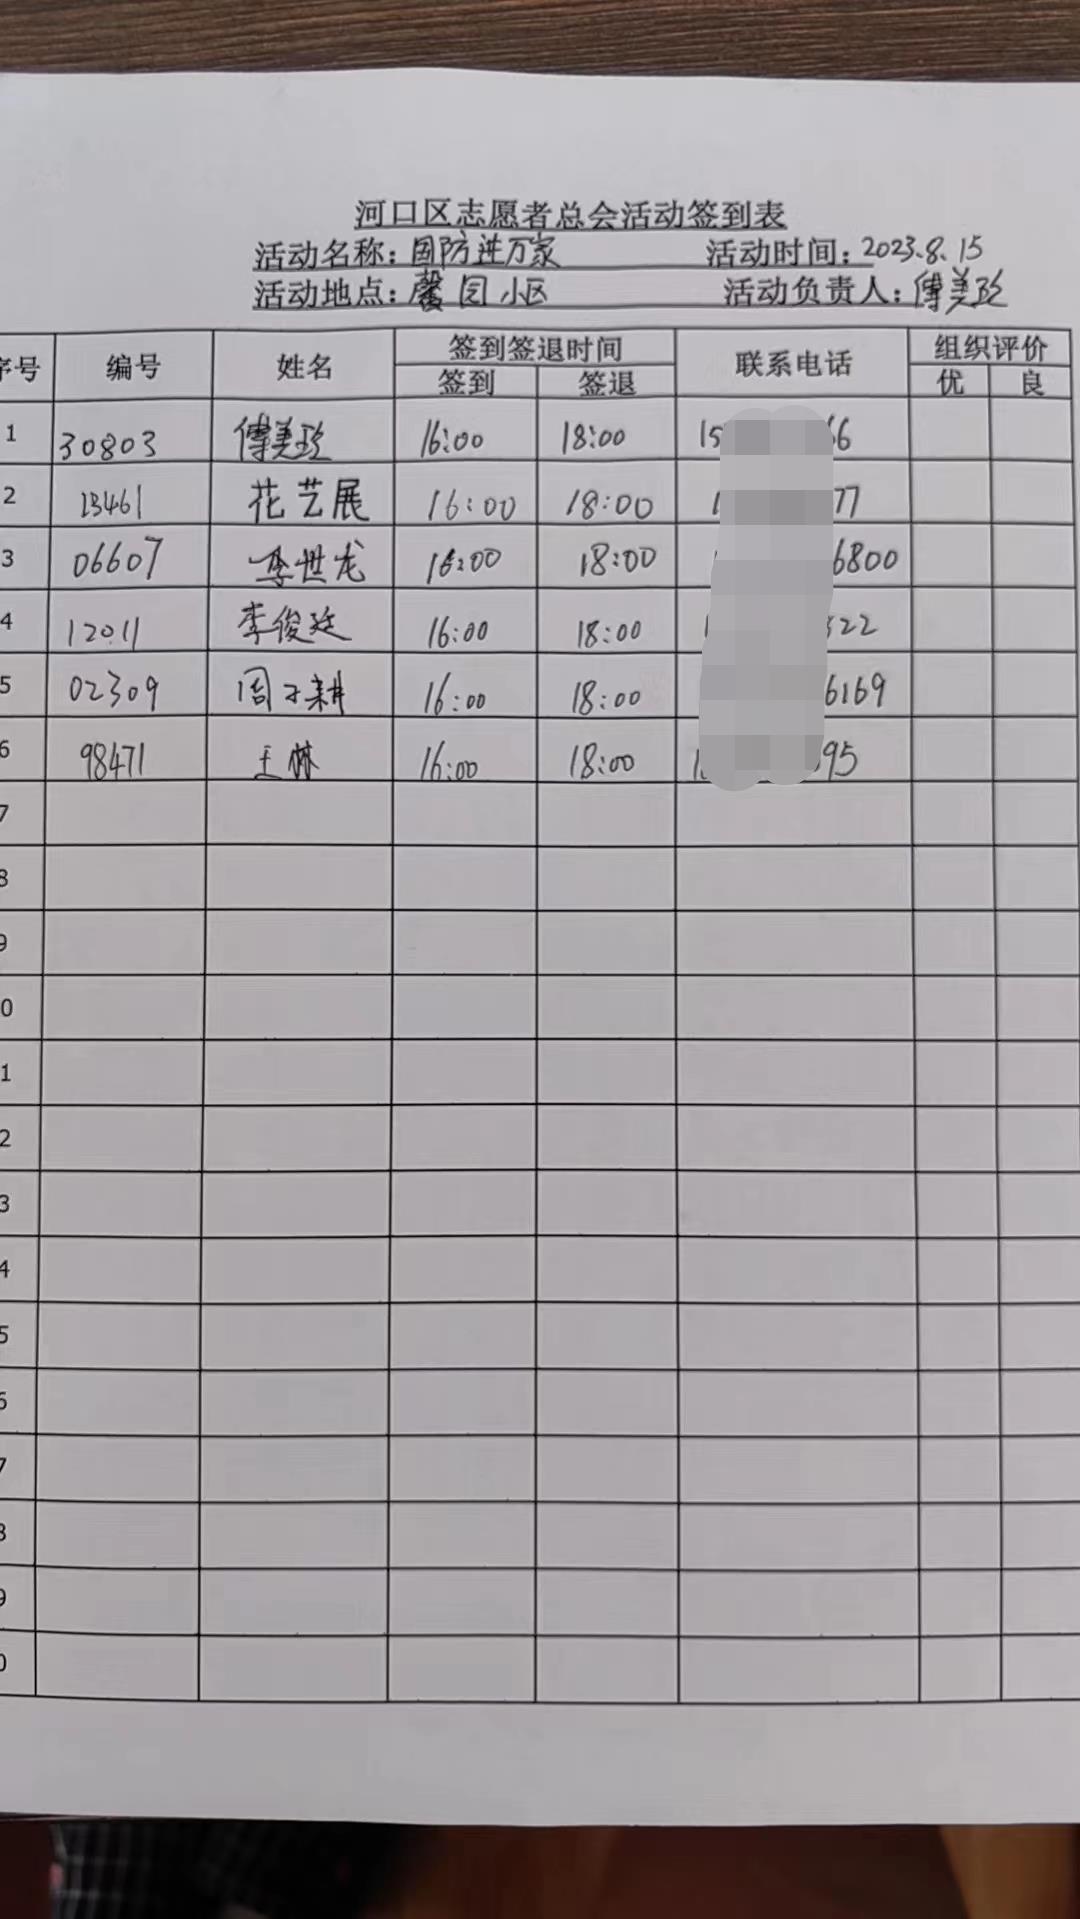 河口区志愿者总会活动签到表
活动名称：国防进万家 活动时间：2023.8.15
活动地点：馨园小区 活动负责人：傅美玲
序号 编号 姓名 签到签退时间 联系电话 组织评价
签到 签退 优 良
1 30803 傅美玲 16:00 18:00 15 66
2 13461 花艺展 16:00 18:00 1 77
3 06607 李世龙 16:00 18:00 6800
4 12011 李俊廷 16:00 18:00 322
5 02309 周子耕 16:00 18:00 6169
6 98471 王林 16:00 18:00 1 95
7
8
9
0
1
2
3
4
5
6
7
8
9
0